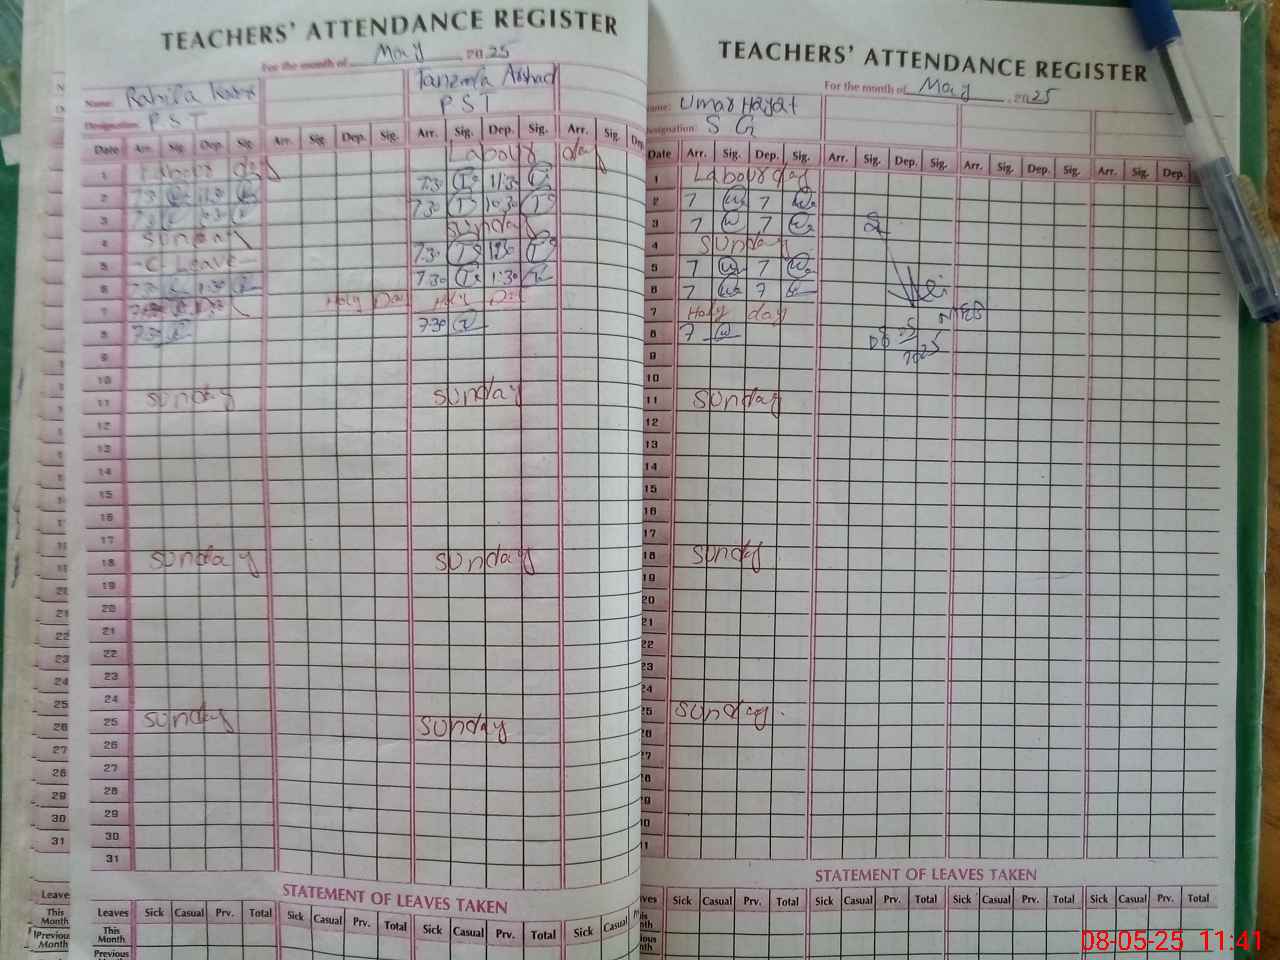 TEACHERS' ATTENDANCE REGISTER
For the month of May 2025
Name: Rahila Tanzeela Arshad
Designation: P.S.T P.S.T
Date Arr. Sig. Dep. Sig. Arr. Sig. Dep. Sig. Arr. Sig. Dep. Sig. Arr. Sig. Dep.
1 Labour day Labour day
2 7:30 11:30 7:30 11:30
3 7:30 10:30 7:30 10:30
4 Sunday Sunday
5 C Leave 7:30
6 7:30 1:30 7:30 1:30
7 Holy Day Holy Day
8 7:30 7:30
9
10
11 Sunday Sunday
12
13
14
15
16
17
18 Sunday Sunday
19
20
21
22
23
24
25 Sunday Sunday
26
27
28
29
30
31
STATEMENT OF LEAVES TAKEN
Leaves Sick Casual Prv. Total Sick Casual Prv. Total Sick Casual Prv. Total Sick Casual
This Month
Previous
TEACHERS' ATTENDANCE REGISTER
For the month of May 2025
Name: Umar Hayat
Designation: S G
Date Arr. Sig. Dep. Sig. Arr. Sig. Dep. Sig. Arr. Sig. Dep. Sig. Arr. Sig. Dep.
1 Labour day
2 7 7
3 7 7
4 Sunday
5 7 7
6 7 7
7 Holy day
8 7
08-05-2025
9
10
11 Sunday
12
13
14
15
16
17
18 Sunday
19
20
21
22
23
24
25 Sunday
26
27
28
29
30
31
STATEMENT OF LEAVES TAKEN
Sick Casual Prv. Total Sick Casual Prv. Total Sick Casual Prv. Total Sick Casual Prv. Total
08-05-25 11:41